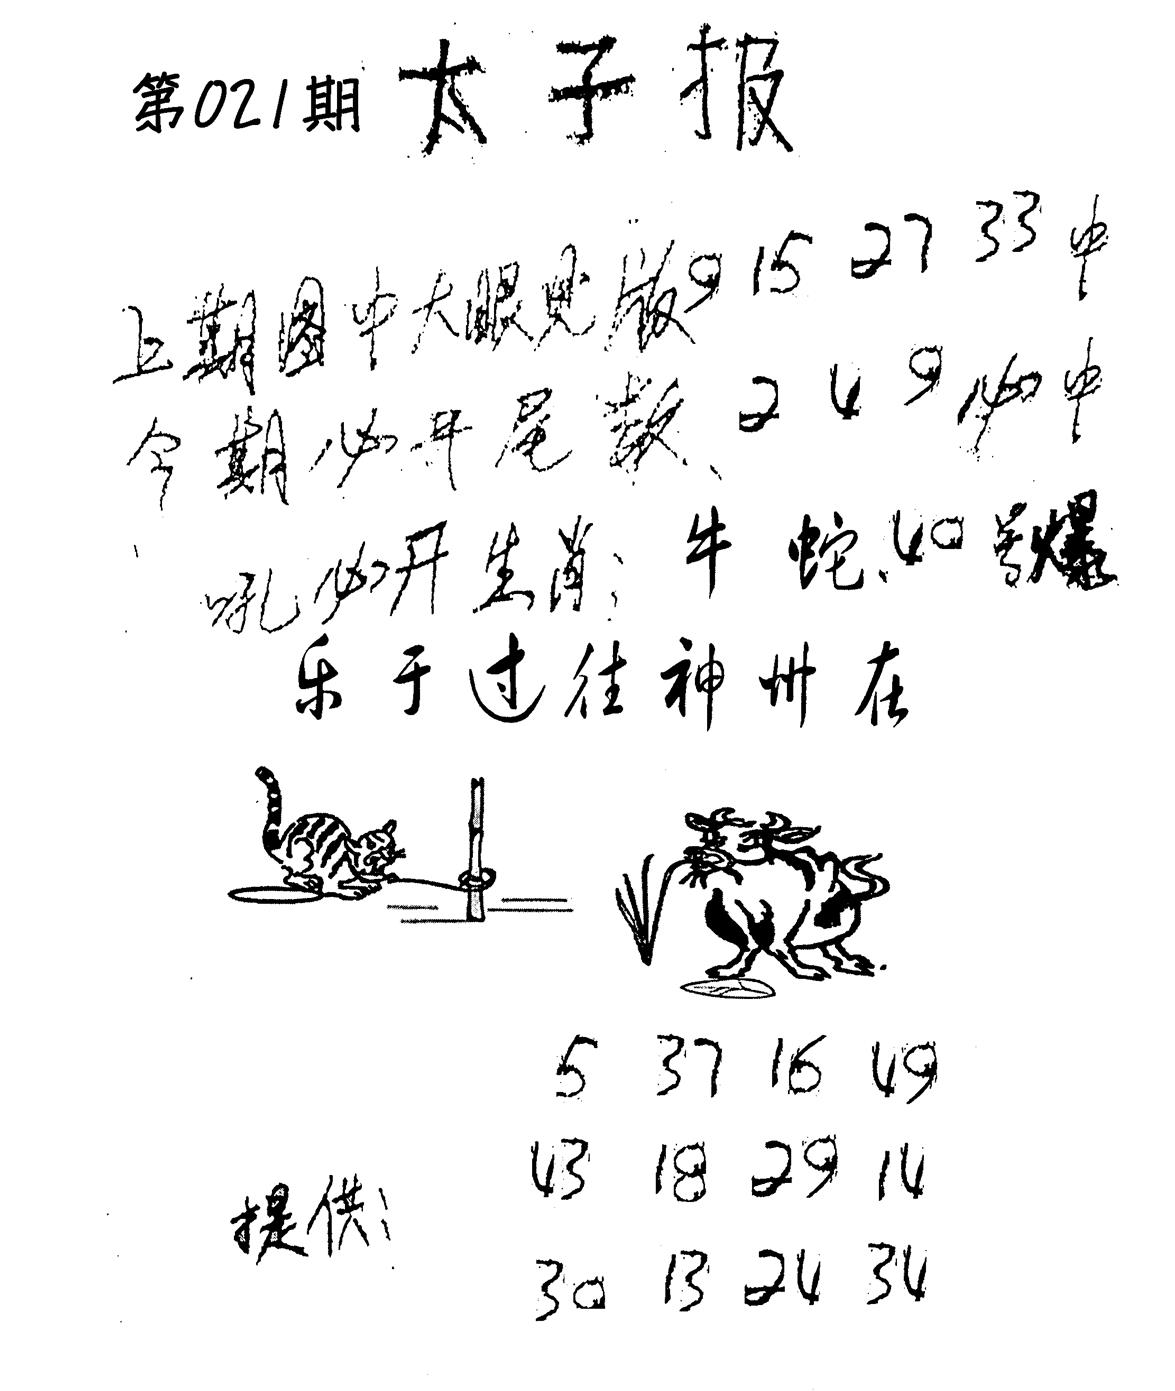 第021期 太子报
上期图中大眼见版9 15 27 33中
今期必开尾数、2 4 9必中
吼必开生肖：牛 蛇.40号爆
乐于过往神州在
5 37 16 49
43 18 29 14
提供：
30 13 24 34